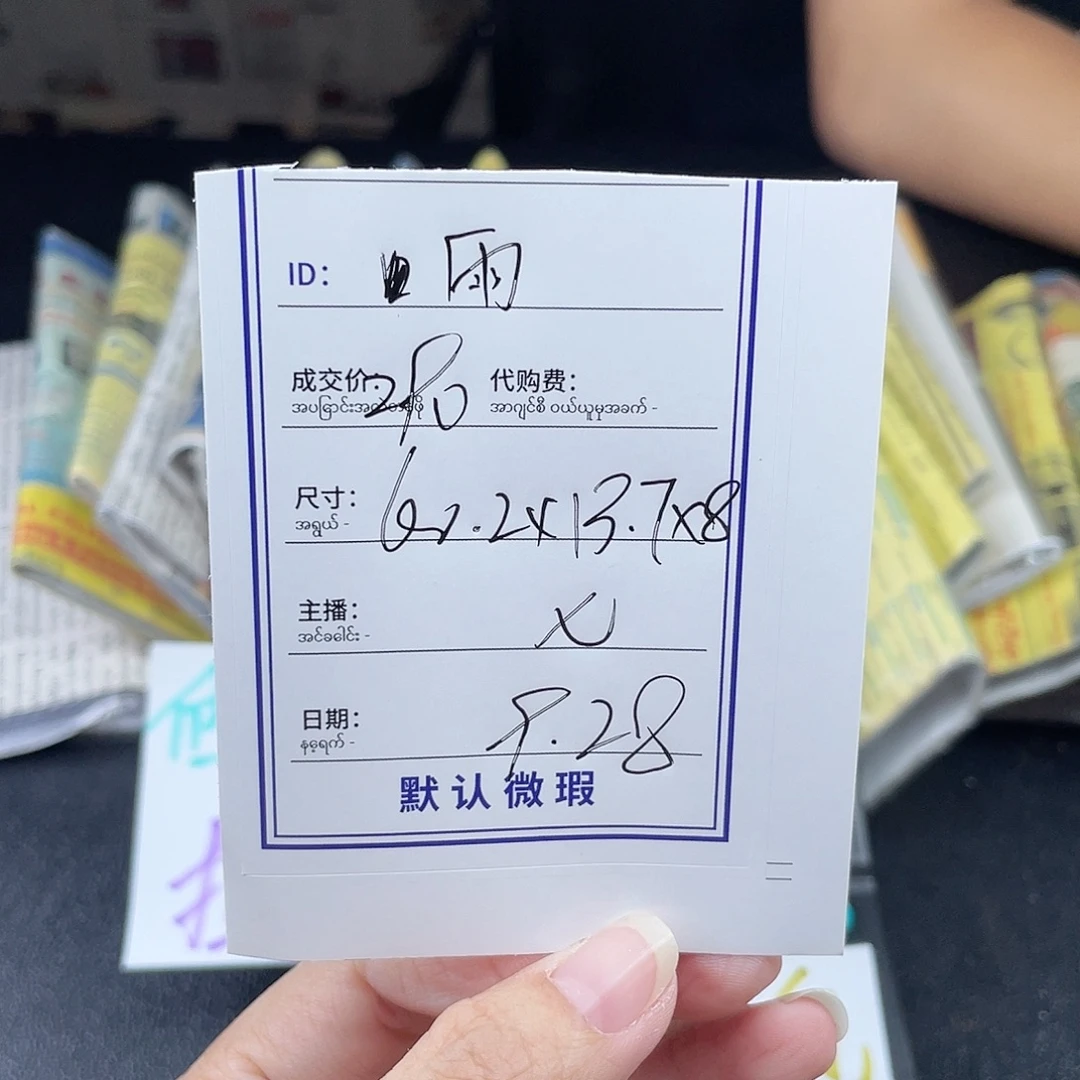 ID： 雨
成交价：290 代购费：
အပြောင်းအလဲတန်ဖိုး အာဂျင်စီ ဝယ်ယူမှုအခက် -
尺寸： 62.2x13.7x8
အရွယ် -
主播： X
အင်ခေါင်း -
日期： 9.28
နေ့ရက် -
默认微瑕